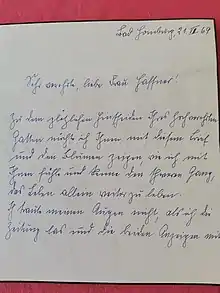 Bad Homburg, 21. IV. 69
Sehr verehrte, liebe Frau Haffner!
Zu dem plötzlichen Hinscheiden Ihres hochverehrten
Gatten möchte ich Ihnen mit diesem Brief
und den Blumen zeigen, wie ich mit
Ihnen fühle und kenne den schweren Gang,
das Leben allein weiter zu leben.
Ich traute meinen Augen nicht, als ich die
Zeitung las und die beiden Anzeigen mit